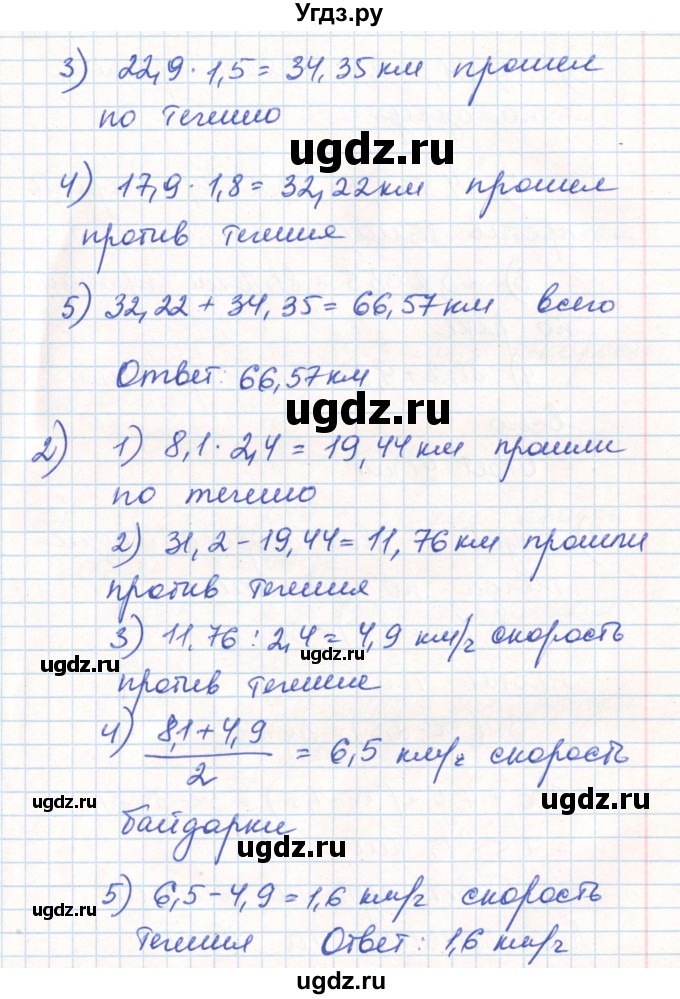 Угдз.ру
3) 22,9 · 1,5 = 34,35 км прошел
по течению
ugdz.ru
4) 17,9 · 1,8 = 32,22 км прошел
против течения
5) 32,22 + 34,35 = 66,57 км всего
Ответ: 66,57 км
ugdz.ru
2) 1) 8,1 · 2,4 = 19,44 км прошли
по течению
2) 31,2 - 19,44 = 11,76 км прошли
против течения
3) 11,76 : 2,4 = 4,9 км/ч скорость
ugdz.ru ugdz.ru
против течение
4) (8,1 + 4,9)/2 = 6,5 км/ч скорость
ugdz.ru ugdz.ru
байдарки
ugdz.ru
5) 6,5 - 4,9 = 1,6 км/ч скорость
ugdz.ru
течения Ответ: 1,6 км/ч
ugdz.ru